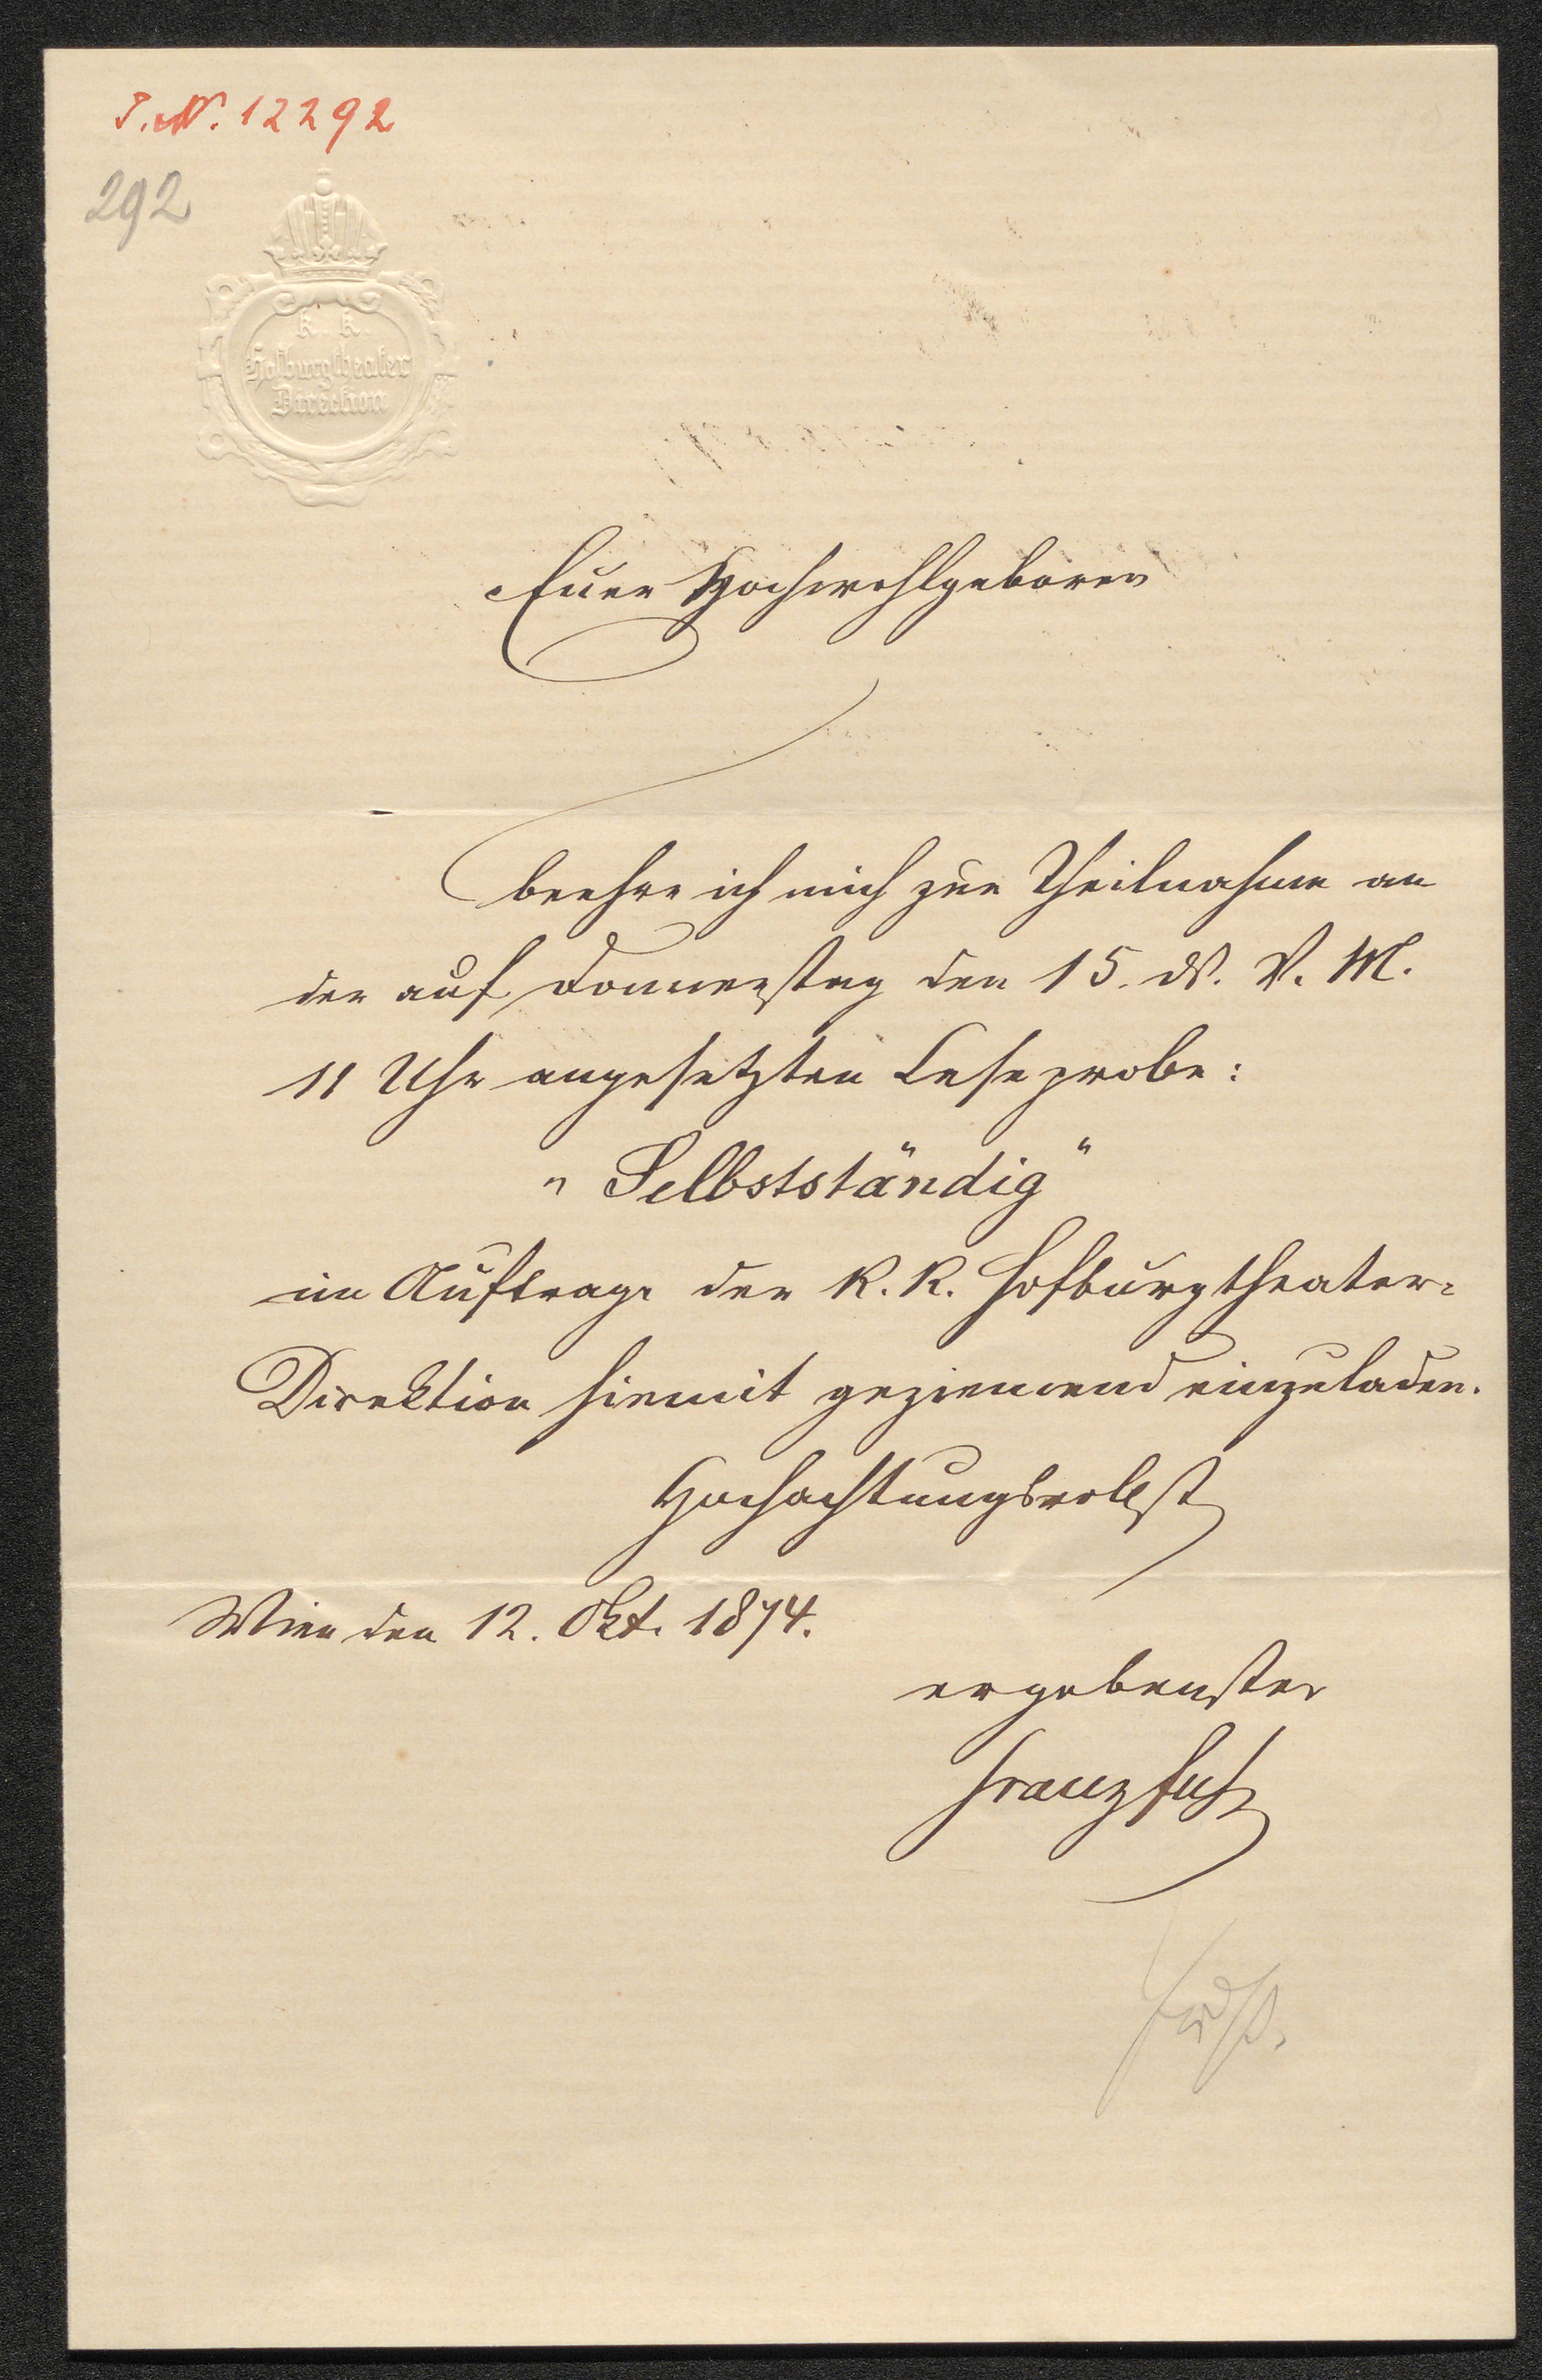 I.N. 12292
292
K. K.
Hofburgtheater
Direction
Euer Hochwohlgeboren
beehre ich mich zur Theilnahme an
der auf Donnerstag den 15. d. V. M.
11 Uhr angesetzten Leseprobe:
„Selbstständig“
im Auftrage der K. K. Hofburgtheater-
Direktion hiemit geziemend einzuladen.
Hochachtungsvollst
Wien den 12. Okt. 1874.
ergebenster
Franz